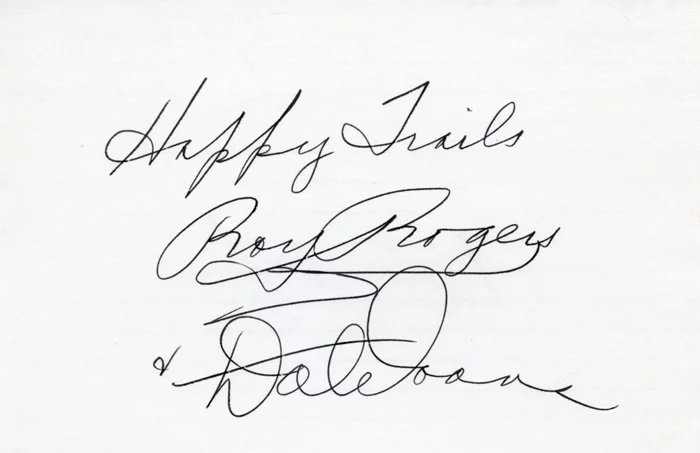 Happy Trails
Roy Rogers
& Dale Evans